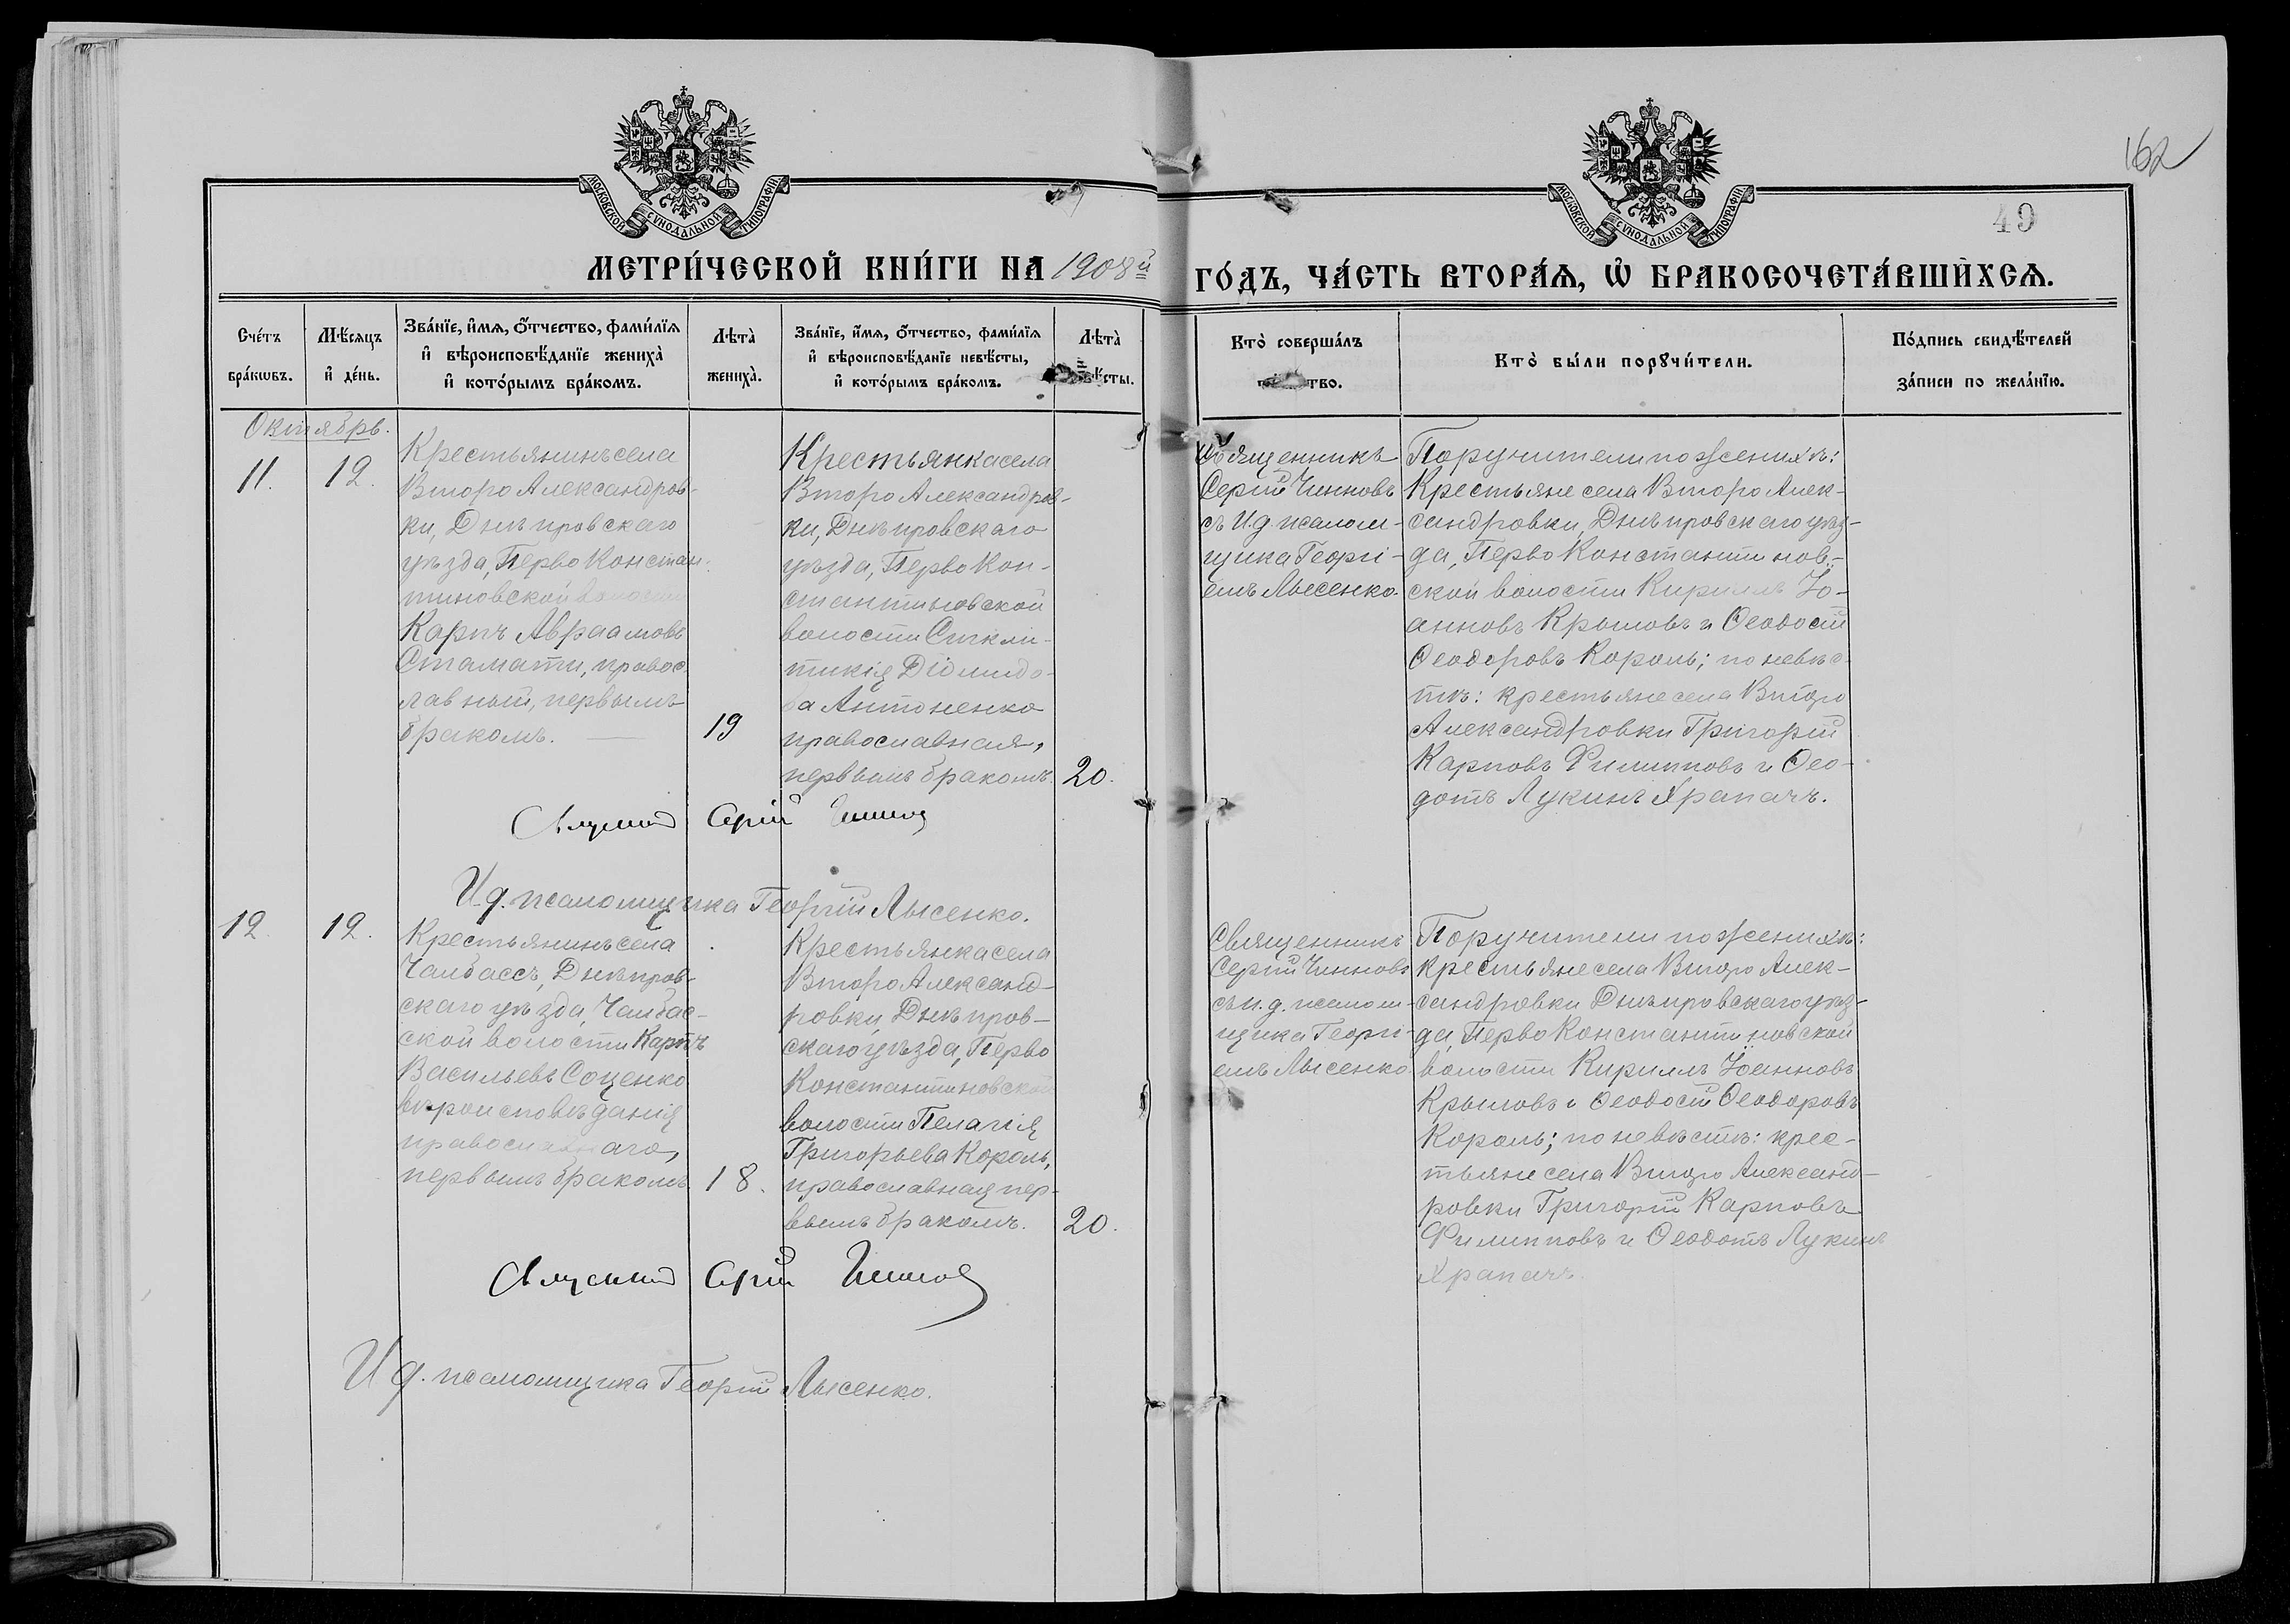 162
49
МОСКОВСКОЙ СѴНОДАЛЬНОЙ ТИПОГРАФІИ
МОСКОВСКОЙ СѴНОДАЛЬНОЙ ТИПОГРАФІИ
МЕТРИ́ЧЕСКОЙ КНИ́ГИ НА 1908й
ГО́ДЪ, ЧА́СТЬ ВТОРА́Ѧ, Ѡ҆ БРАКОСОЧЕТА́ВШИХСѦ.
Сче́тъ бра́кѡвъ.
Мѣ́сяцъ и҆ де́нь.
Зва́нїе, и҆́мя, ѻ҆́тчество, фами́лїя и҆ вѣроисповѣ́данїе жениха̀ и҆ кото́рымъ бра́комъ.
Лѣта̀ жениха̀.
Зва́нїе, и҆́мя, ѻ҆́тчество, фами́лїя и҆ вѣроисповѣ́данїе невѣ́сты, и҆ кото́рымъ бра́комъ.
Лѣта̀ вѣ́сты.
Кто̀ соверша́лъ тво.
Кто̀ бы́ли порꙋчи́тели.
По́дпись свидѣ́телей за́писи по жела́нїю.
Октябрь.
11.
12.
Крестьянинъ села
Второ Александров-
ки, Днѣпровскаго
уѣзда, Перво Констан-
тиновской волости
Карпъ Авраамовъ
Стамати, правос
лавный, первымъ
бракомъ.
19
Крестьянка села
Второ Александров-
ки, Днѣпровскаго
уѣзда, Перво Кон-
стантиновской
волости Сигкли-
тикія Діомидо-
ва Антоненко
православная,
первымъ бракомъ.
20.
Священникъ
Сергій Чинновъ
съ И.д. псалом-
щика Георгі-
емъ Лысенко.
Поручители по женихѣ:
Крестьяне села Второ Алек-
сандровки, Днѣпровскаго уѣз-
да, Перво Константинов-
ской волости Кириллъ Іо-
анновъ Крыловъ и Ѳеодосій
Ѳеодоровъ Король; по невѣс-
тѣ: крестьяне села Второ
Александровки Григорій
Карповъ Филипповъ и Ѳео-
дотъ Лукинъ Храпачъ.
Священникъ Сергій Чинновъ
И.д. псаломщика Георгій Лысенко.
12.
12.
Крестьянинъ села
Чалбассъ, Днѣпров-
скаго уѣзда, Чалбас-
ской волости Карпъ
Васильевъ Соценко
вѣроисповѣданія
православнаго,
первымъ бракомъ
18.
Крестьянка села
Второ Александ-
ровки, Днѣпров-
скаго уѣзда, Перво
Константиновской
волости Пелагія
Григорьева Король,
православная пер-
вымъ бракомъ.
20.
Священникъ
Сергій Чинновъ
съ И.д. псалом-
щика Георгі-
емъ Лысенко
Поручители по женихѣ:
крестьяне села Второ Алек-
сандровки Днѣпровскаго уѣз-
да, Перво Константиновской
волости Кириллъ Іоанновъ
Крыловъ и Ѳеодосій Ѳеодоровъ
Король; по невѣстѣ: крес-
тьяне села Второ Александ-
ровки Григорій Карповъ
Филипповъ и Ѳеодотъ Лукинъ
Храпачъ.
Священникъ Сергій Чинновъ
И.д. псаломщика Георгій Лысенко.